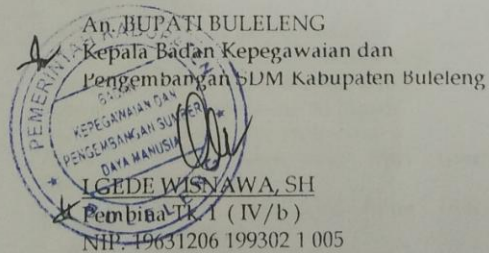 An. BUPATI BULELENG
Kepala Badan Kepegawaian dan
Pengembangan SDM Kabupaten Buleleng
PEMERINTAH KABUPATEN
BADAN
KEPEGAWAIAN DAN
PENGEMBANGAN SUMBER
DAYA MANUSIA
BULELENG
I GEDE WISNAWA, SH
Pembina Tk. I ( IV/b )
NIP. 19631206 199302 1 005